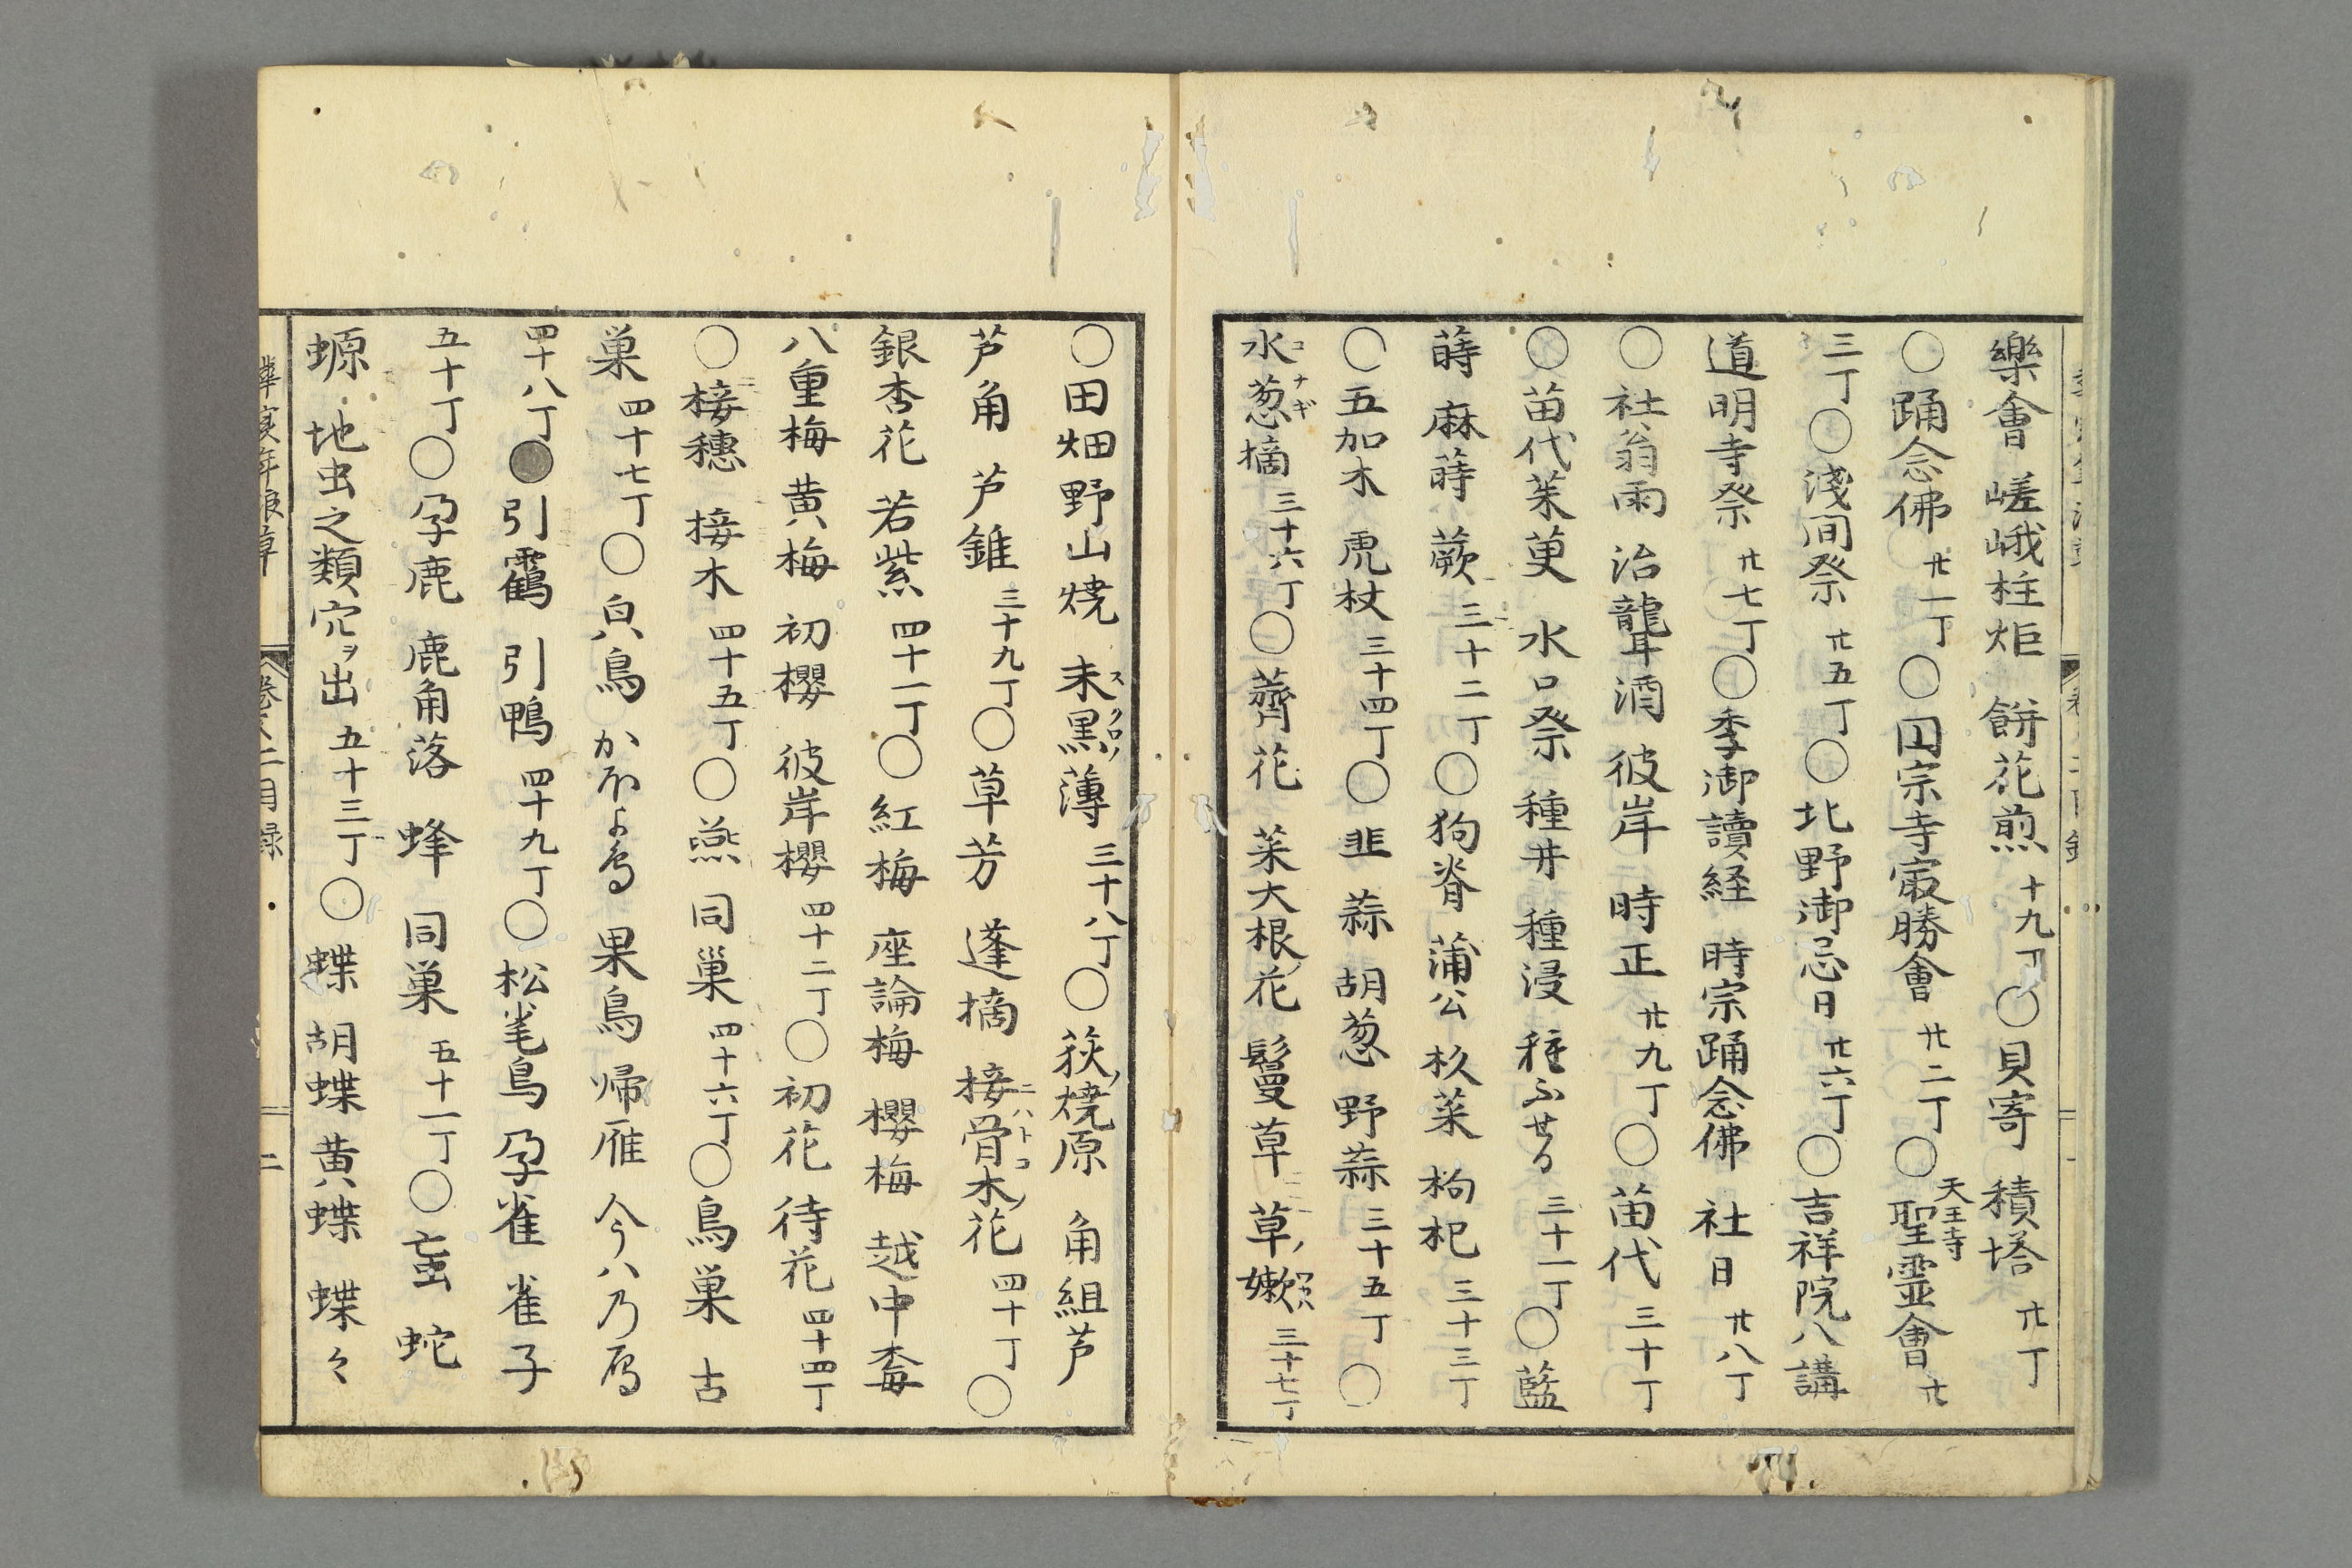 樂會 嵯峨柱炬 餅花煎 十九丁〇貝寄 積塔 廿丁
〇踊念佛 廿一丁〇囩宗寺㝡勝會 廿二丁〇天王寺聖霊會 廿
三丁〇淺间祭 廿五丁〇北野御忌日 廿六丁〇吉祥院八講
道明寺祭 廿七丁〇季御讀経 時宗踊念佛 社日 廿八丁
〇社翁雨 治聾酒 彼岸 時正 廿九丁〇苗代 三十丁
〇苗代茱萸 水口祭 種井 種浸 種ふせる 三十一丁〇藍
蒔 麻蒔 蕨 三十二丁〇狗脊 蒲公 杦菜 枸杞 三十三丁
〇五加木 虎杖 三十四丁〇韭 蒜 胡葱 野蒜 三十五丁〇
水葱摘 コナギ 三十六丁〇薺花 菜大根ノ花 鬘草 草ノ嫩 ワカバ 三十七丁
〇田畑野山焼 末黒ノ薄 スグロノ 三十八丁〇荻ノ焼原 角組芦
芦角 芦錐 三十九丁〇草芳 蓬摘 接骨木ノ花 ニハトコ 四十丁〇
銀杏花 若紫 四十一丁〇紅梅 座論梅 櫻梅 越中梅
八重梅 黄梅 初櫻 彼岸櫻 四十二丁〇初花 待花 四十四丁
〇接穗 接木 四十五丁〇燕 同巢 四十六丁〇鳥巣 古
巣 四十七丁〇㒵鳥 かほよ鳥 果鳥 帰雁 今ハ乃雁
四十八丁●引靏 引鴨 四十九丁〇松毟鳥 孕雀 雀子
五十丁〇孕鹿 鹿角落 蜂 同巣 五十一丁〇蝱 蛇
螈 地虫之類穴ヲ出 五十三丁〇蝶 胡蝶 黄蝶 蝶々
華実年浪草 卷之二目録 二